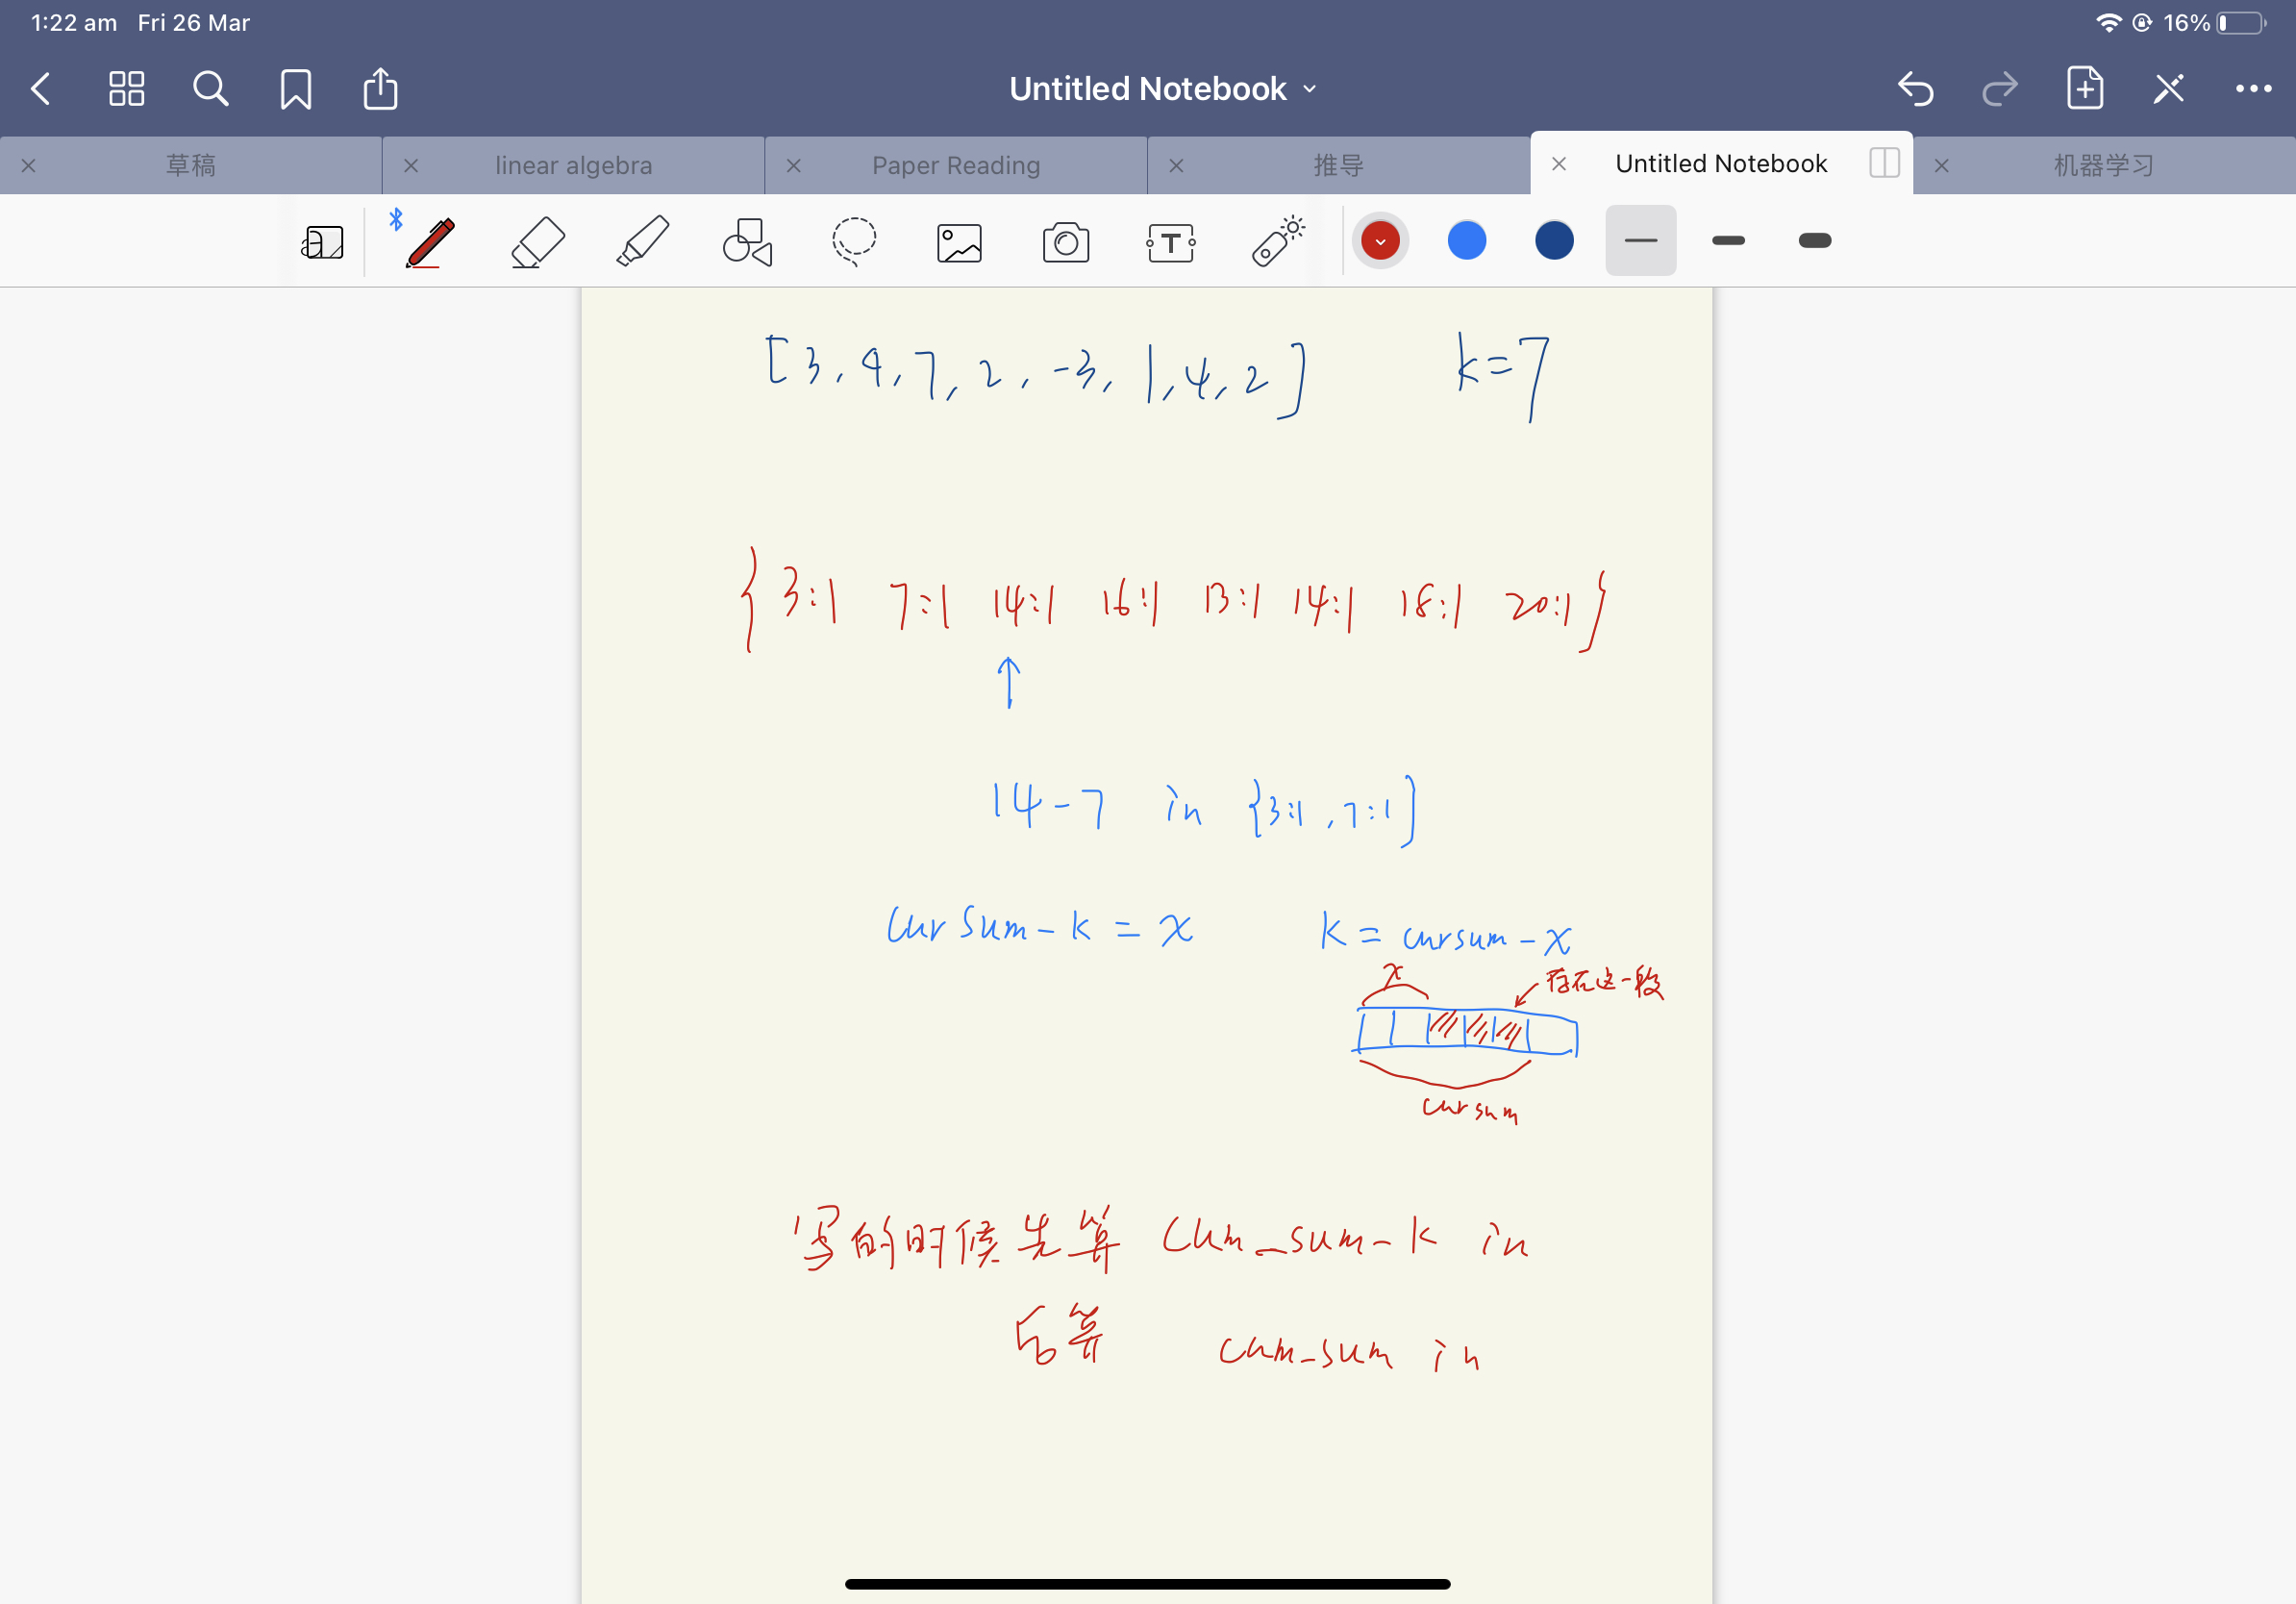 1:22 am Fri 26 Mar 16%
Untitled Notebook
草稿 linear algebra Paper Reading 推导 Untitled Notebook 机器学习
T
[3, 4, 7, 2, -3, 1, 4, 2] k=7
{3:1 7:1 14:1 16:1 13:1 14:1 18:1 20:1}
↑
14-7 in {3:1, 7:1}
curSum-k = x K = cursum-x
x 存在这一段
cursum
写的时候先算 Cum_sum-k in
后算 cum_sum in